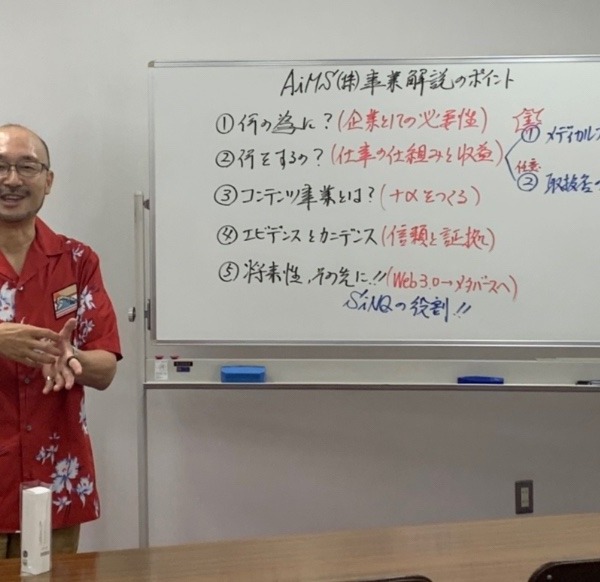 AiMS(株)事業解説のポイント
①何の為に?(企業としての必要性)
②何をするの?(仕事の仕組みと収益)
① メディカル
任意
② 取扱
③コンテンツ事業とは?(+αをつくる)
④エビデンスとカニデンス(信頼と証拠)
⑤将来性、その先に!!(Web3.0→メタバースへ)
の役割!!